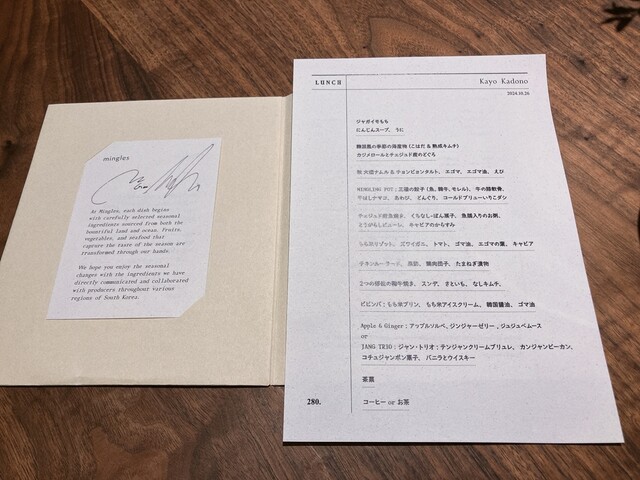 mingles
At Mingles, each dish begins
with carefully selected seasonal
ingredients sourced from both the
bountiful land and ocean. Fruits,
vegetables, and seafood that
capture the taste of the season are
transformed through our hands.
We hope you enjoy the seasonal
changes with the ingredients we have
directly communicated and collaborated
with producers throughout various
regions of South Korea.
LUNCH
Kayo Kadono
2024.10.26
ジャガイモもち
にんじんスープ、うに
韓国風の季節の海産物 (こはだ & 熟成キムチ)
カツメロールとチェジュド産のどぐろ
秋 大根ナムル & チョンピョンタルト、エゴマ、エゴマ油、えび
MINGLING POT : 三種の餃子 (魚、韓牛、モレル)、牛の膝軟骨、
干ほしナマコ、あわび、どんぐり、コールドブリューいりこダシ
チェジュド産魚焼き、くちなし・ぽん菓子、魚麺入りのお粥、
とうがらしピューレ、キャビアのからすみ
うちわリゾット、ズワイガニ、トマト、ゴマ油、エゴマの葉、キャビア
チキンルーラード、鶏肉団子、たまねぎ漬物
2つの部位の韓牛焼き、スンデ、さといも、なしキムチ、
ビビンバ : もち米プリン、もち米アイスクリーム、韓国醤油、ゴマ油
Apple & Ginger : アップルソルベ、ジンジャーゼリー、ジュジュベムース
or
JANG TRIO : ジャン・トリオ : テンジャンクリームブリュレ、カンジャンピーカン、
コチュジャンポン菓子、バニラとウイスキー
茶菓
280.
コーヒー or お茶